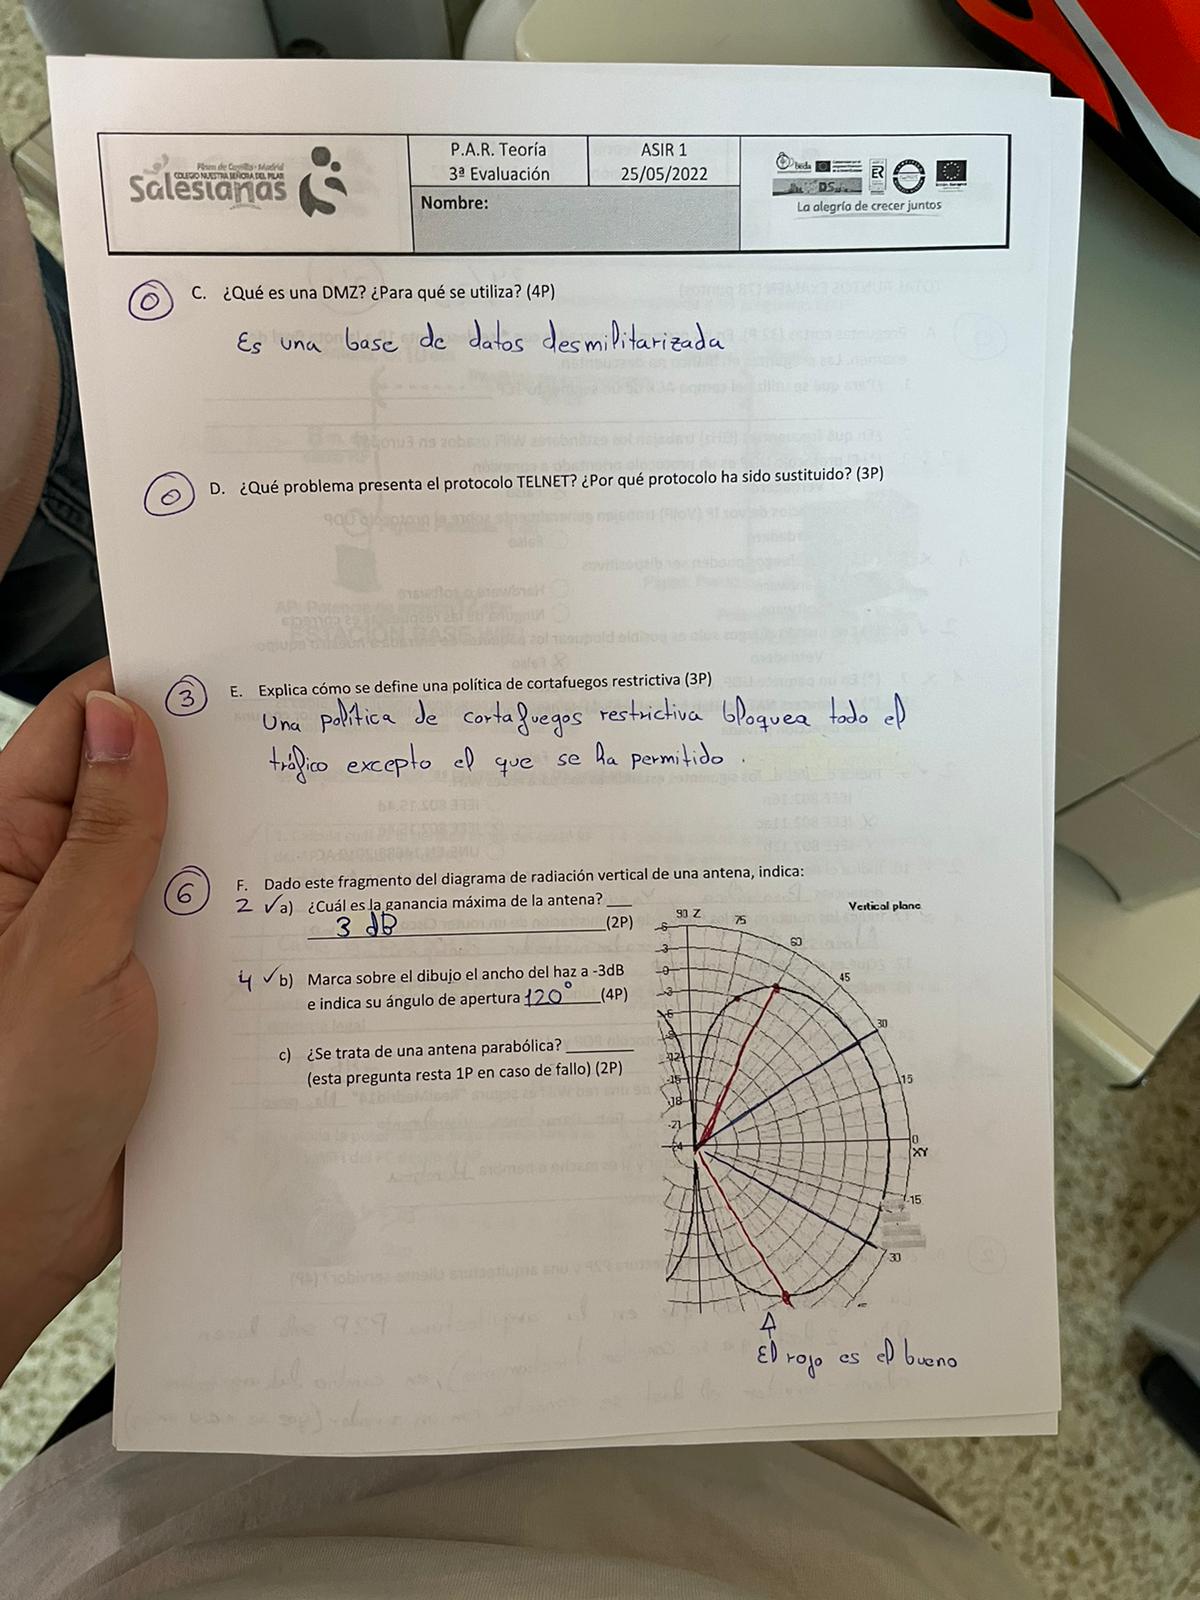 Pinos de Castilla - Madrid
COLEGIO NUESTRA SEÑORA DEL PILAR
Salesianas
P.A.R. Teoría
3ª Evaluación
ASIR 1
25/05/2022
Nombre:
beda
ER
La alegría de crecer juntos
0 C. ¿Qué es una DMZ? ¿Para qué se utiliza? (4P)
Es una base de datos desmilitarizada
0 D. ¿Qué problema presenta el protocolo TELNET? ¿Por qué protocolo ha sido sustituido? (3P)
3 E. Explica cómo se define una política de cortafuegos restrictiva (3P)
Una política de cortafuegos restrictiva bloquea todo el
tráfico excepto el que se ha permitido.
6 F. Dado este fragmento del diagrama de radiación vertical de una antena, indica:
2 ✓ a) ¿Cuál es la ganancia máxima de la antena? ___
3 dB (2P)
4 ✓ b) Marca sobre el dibujo el ancho del haz a -3dB
e indica su ángulo de apertura 120° (4P)
c) ¿Se trata de una antena parabólica? ________
(esta pregunta resta 1P en caso de fallo) (2P)
Vertical plane
90 Z
75
60
45
30
15
0
XY
-15
30
-3
-12
-15
-18
-21
El rojo es el bueno